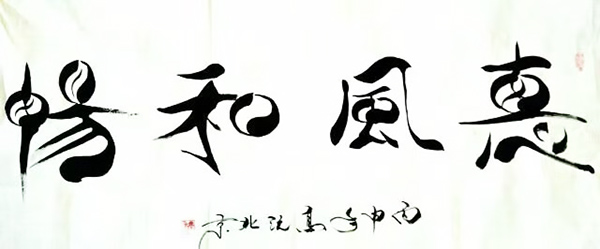 惠風和暢
丙申年高沅北京